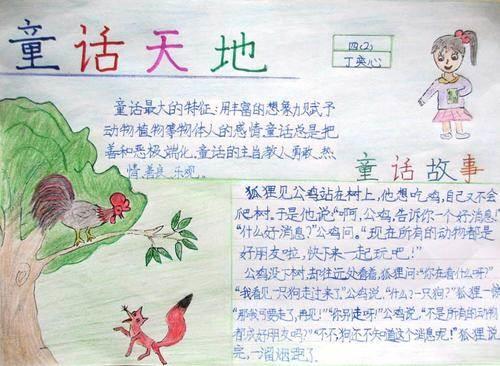 童话天地
四(2)
丁奕心
童话最大的特征:用丰富的想象力赋予
动物植物等物体人的感情童话总是把
善和恶极端化,童话的主旨教人勇敢、热
情、善良、乐观。
童话故事
狐狸见公鸡站在树上,他想吃鸡,自己又不会
爬树。于是他说:“啊,公鸡,告诉你一个好消息”
“什么好消息?”公鸡问。“现在所有的动物都是
好朋友啦,快下来一起玩吧!”
公鸡没下树,却往远处看着,狐狸问:“你在看什么呀?”
“我看见一只狗走过来了”公鸡说,“什么?一只狗?”狐狸一惊
“那我可要走了,再见!”“你别走呀!”公鸡说,“不是所有的动物
都成好朋友吗?”“不,不,狗还不知道这个消息呢!”狐狸说
完,一溜烟跑了